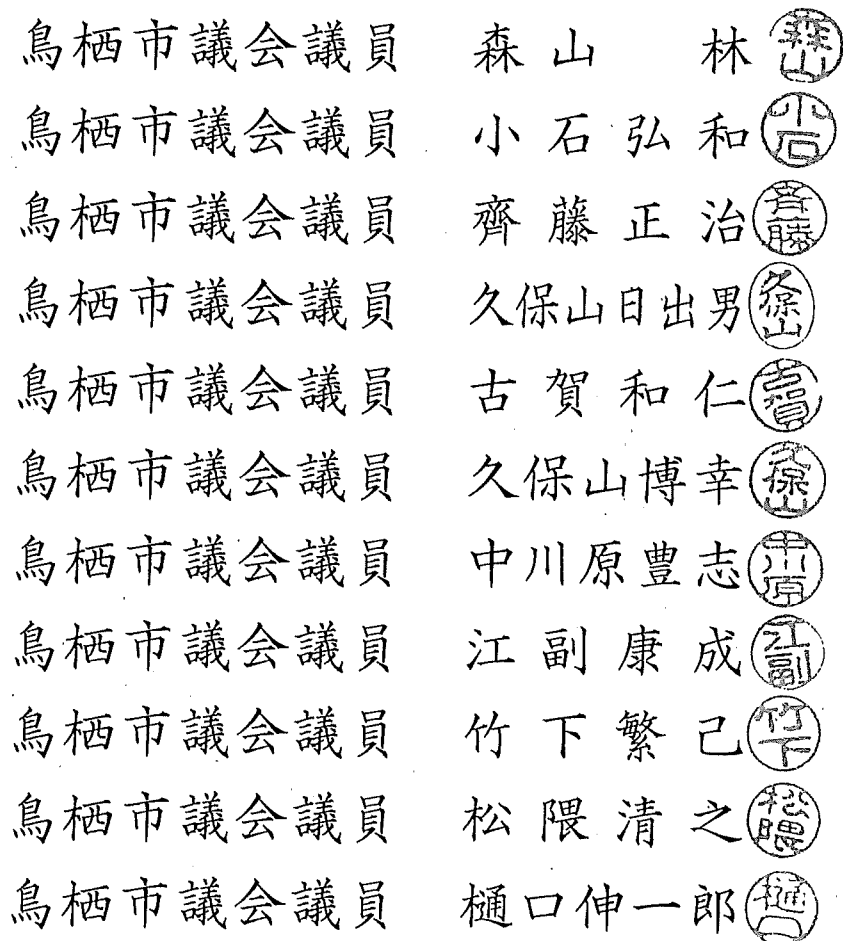 鳥栖市議会議員 森山 林 森山
鳥栖市議会議員 小石弘和 小石
鳥栖市議会議員 齊藤正治 斉藤
鳥栖市議会議員 久保山日出男 久保山
鳥栖市議会議員 古賀和仁 古賀
鳥栖市議会議員 久保山博幸 久保山
鳥栖市議会議員 中川原豊志 中川原
鳥栖市議会議員 江副康成 江副
鳥栖市議会議員 竹下繁己 竹下
鳥栖市議会議員 松隈清之 松隈
鳥栖市議会議員 樋口伸一郎 樋口